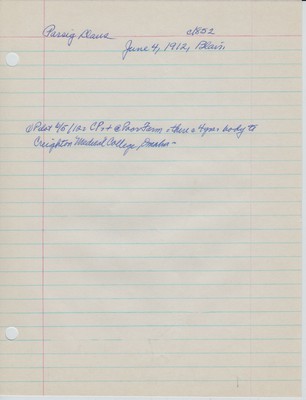 Parsig Claus c1852
June 4, 1912, Blair.
@Pilot 6/5/12: CP. + @ Poor Farm there 4 yrs body to
Creighton Medical College, Omaha